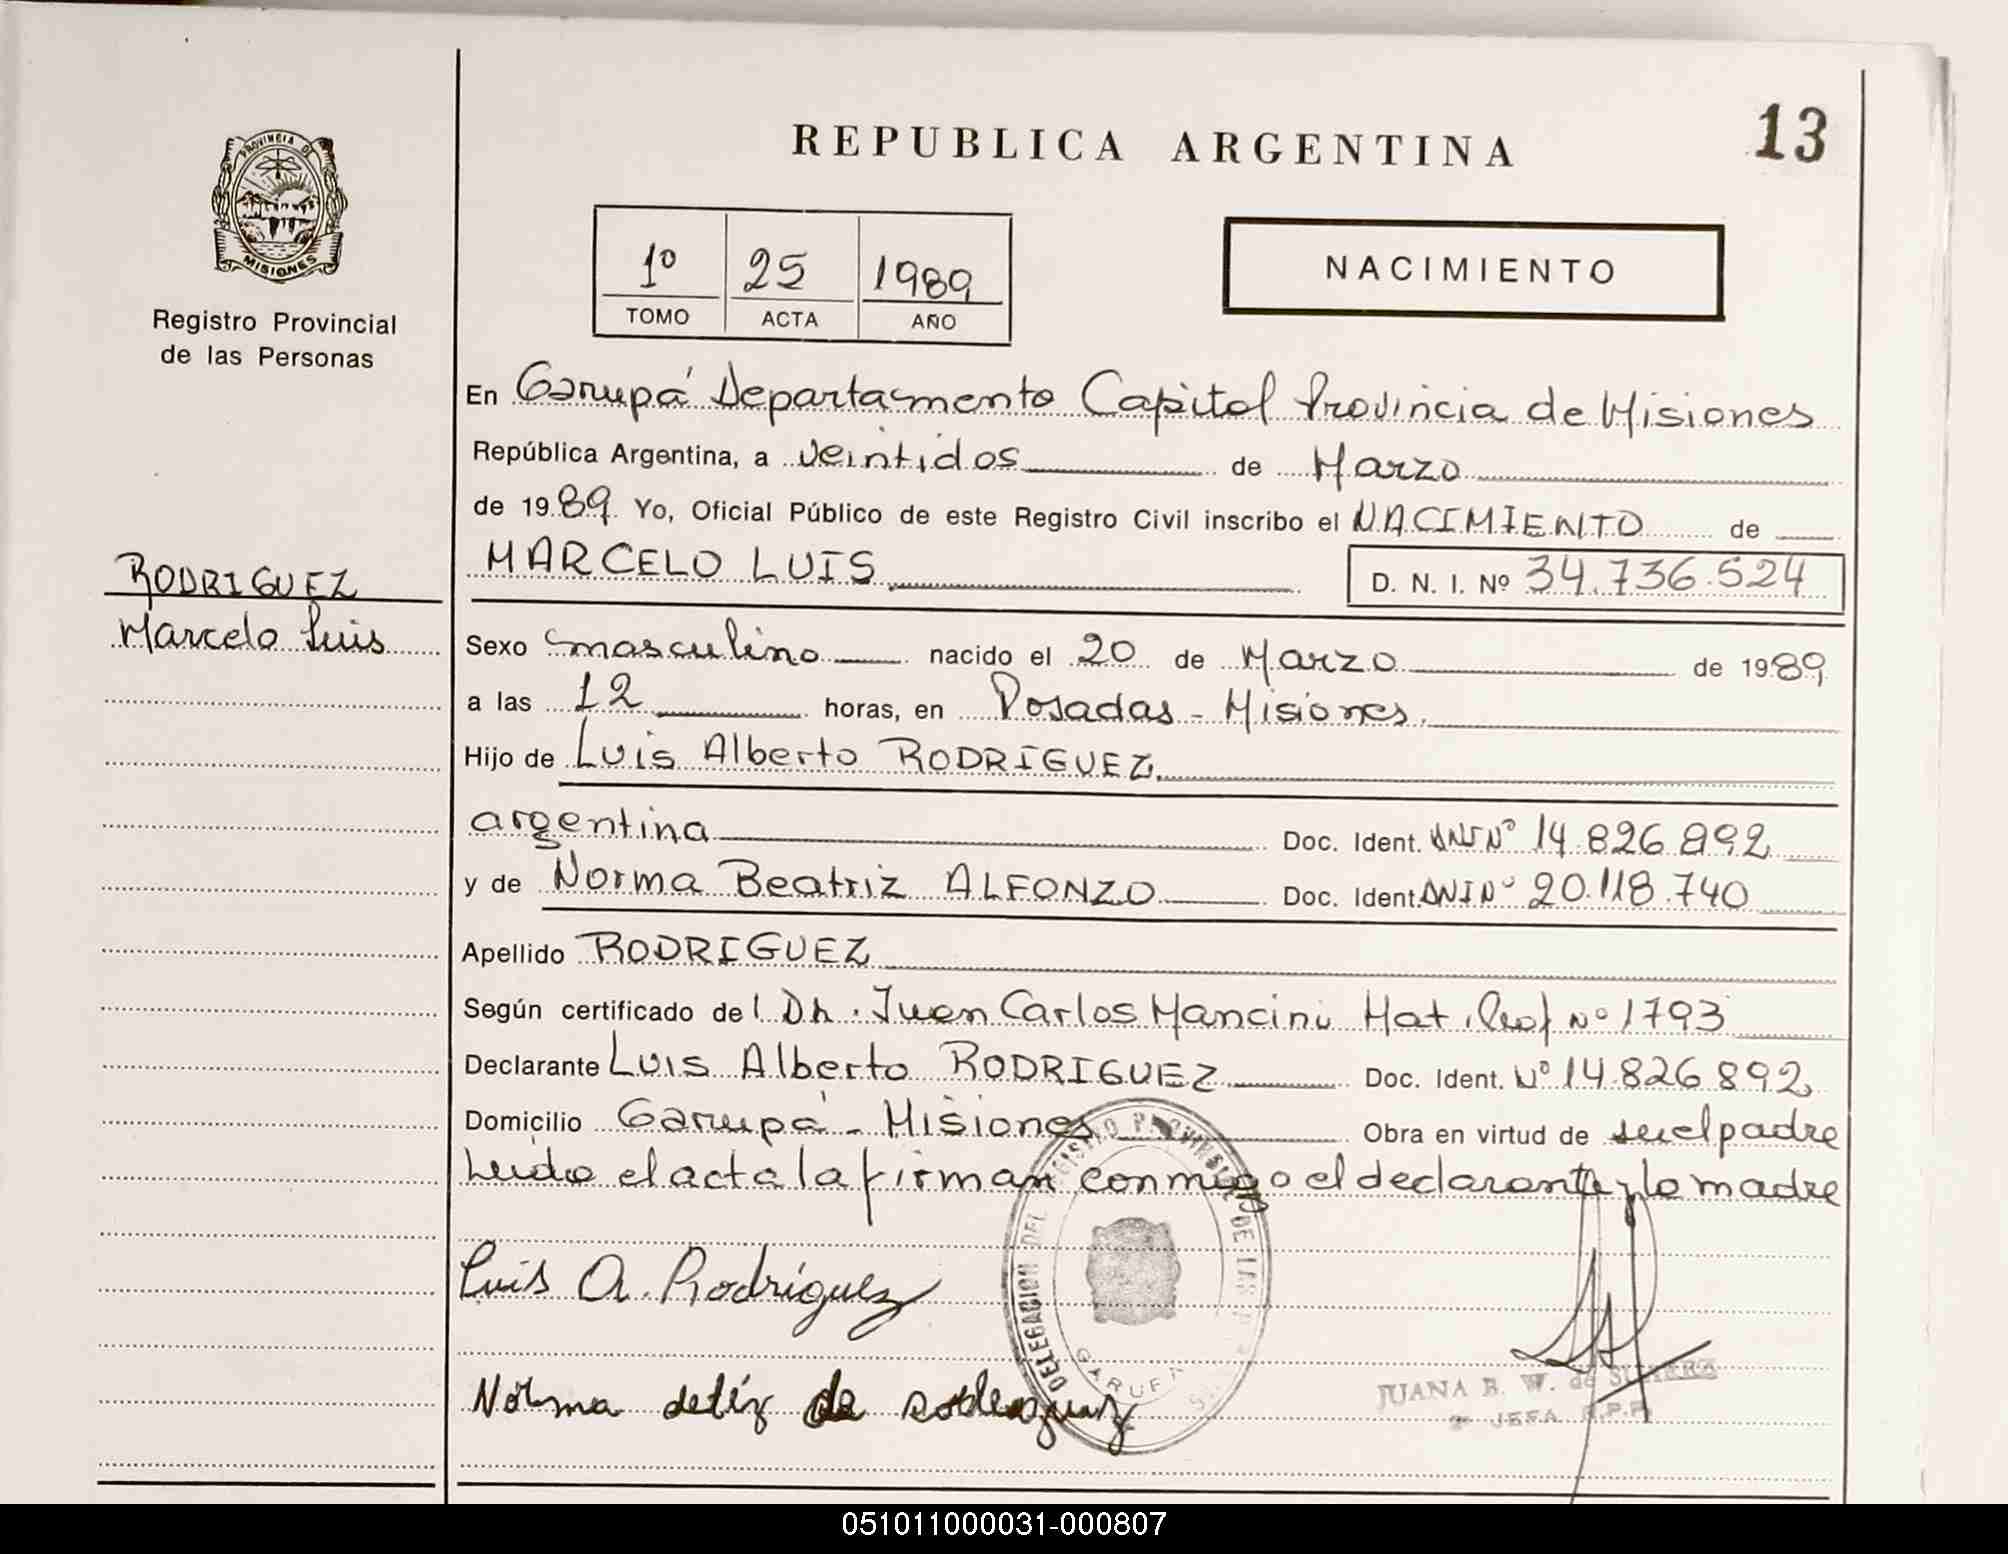 REPUBLICA ARGENTINA
13
PROVINCIA DE
MISIONES
Registro Provincial
de las Personas
1º 25 1989
TOMO ACTA AÑO
NACIMIENTO
En Garupá Departamento Capital Provincia de Misiones
República Argentina, a veintidos de Marzo
de 1989 Yo, Oficial Público de este Registro Civil inscribo el NACIMIENTO de
MARCELO LUIS D. N. I. Nº 34.736.524
RODRIGUEZ
Marcelo Luis
Sexo masculino nacido el 20 de Marzo de 1989
a las 12 horas, en Posadas - Misiones.
Hijo de Luis Alberto RODRIGUEZ.
argentina Doc. Ident. DNI Nº 14.826.892
y de Norma Beatriz ALFONZO Doc. Ident. DNI Nº 20.118.740
Apellido RODRIGUEZ
Según certificado del Dr. Juan Carlos Mancini Mat. Prof Nº 1793
Declarante Luis Alberto RODRIGUEZ Doc. Ident. Nº 14.826.892
Domicilio Garupá - Misiones Obra en virtud de ser el padre
Leida el acta la firman conmigo el declarante y la madre
Luis A. Rodriguez
DELEGACION DEL REGISTRO PROVINCIAL DE LAS
GARUPA
Norma de
JUANA B. W. de SUAREZ
JEFA R.P.P.
051011000031-000807